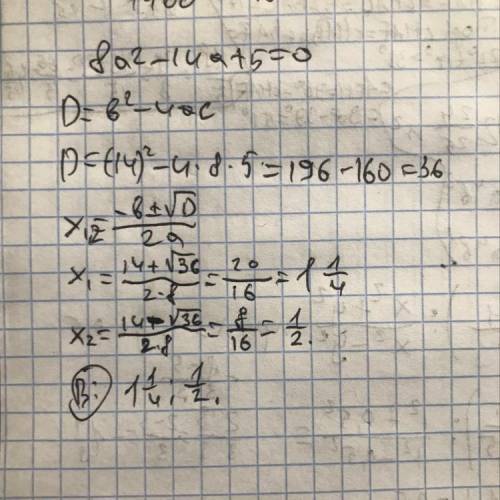 8a² - 14a + 5 = 0
D = b² - 4ac
D = (14)² - 4 · 8 · 5 = 196 - 160 = 36
x₁,₂ = (-b ± √D)/(2a)
x₁ = (14 + √36)/(2·8) = 20/16 = 1 1/4
x₂ = (14 - √36)/(2·8) = 8/16 = 1/2.
В: 1 1/4; 1/2.